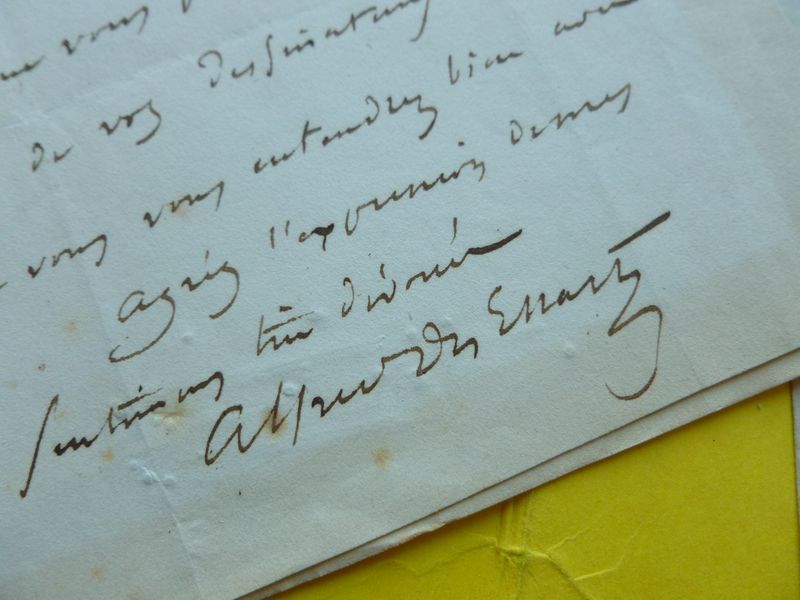 que vous
de vos dessinateurs
vous vous entendrez bien avec
agréez l'expression de mes
sentimens très dévoués
Alfred Des Essarts